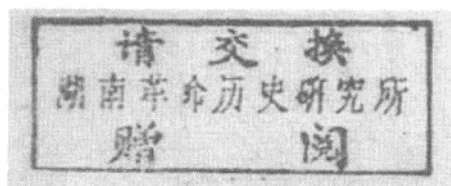 请交换
湖南革命历史研究所
赠阅